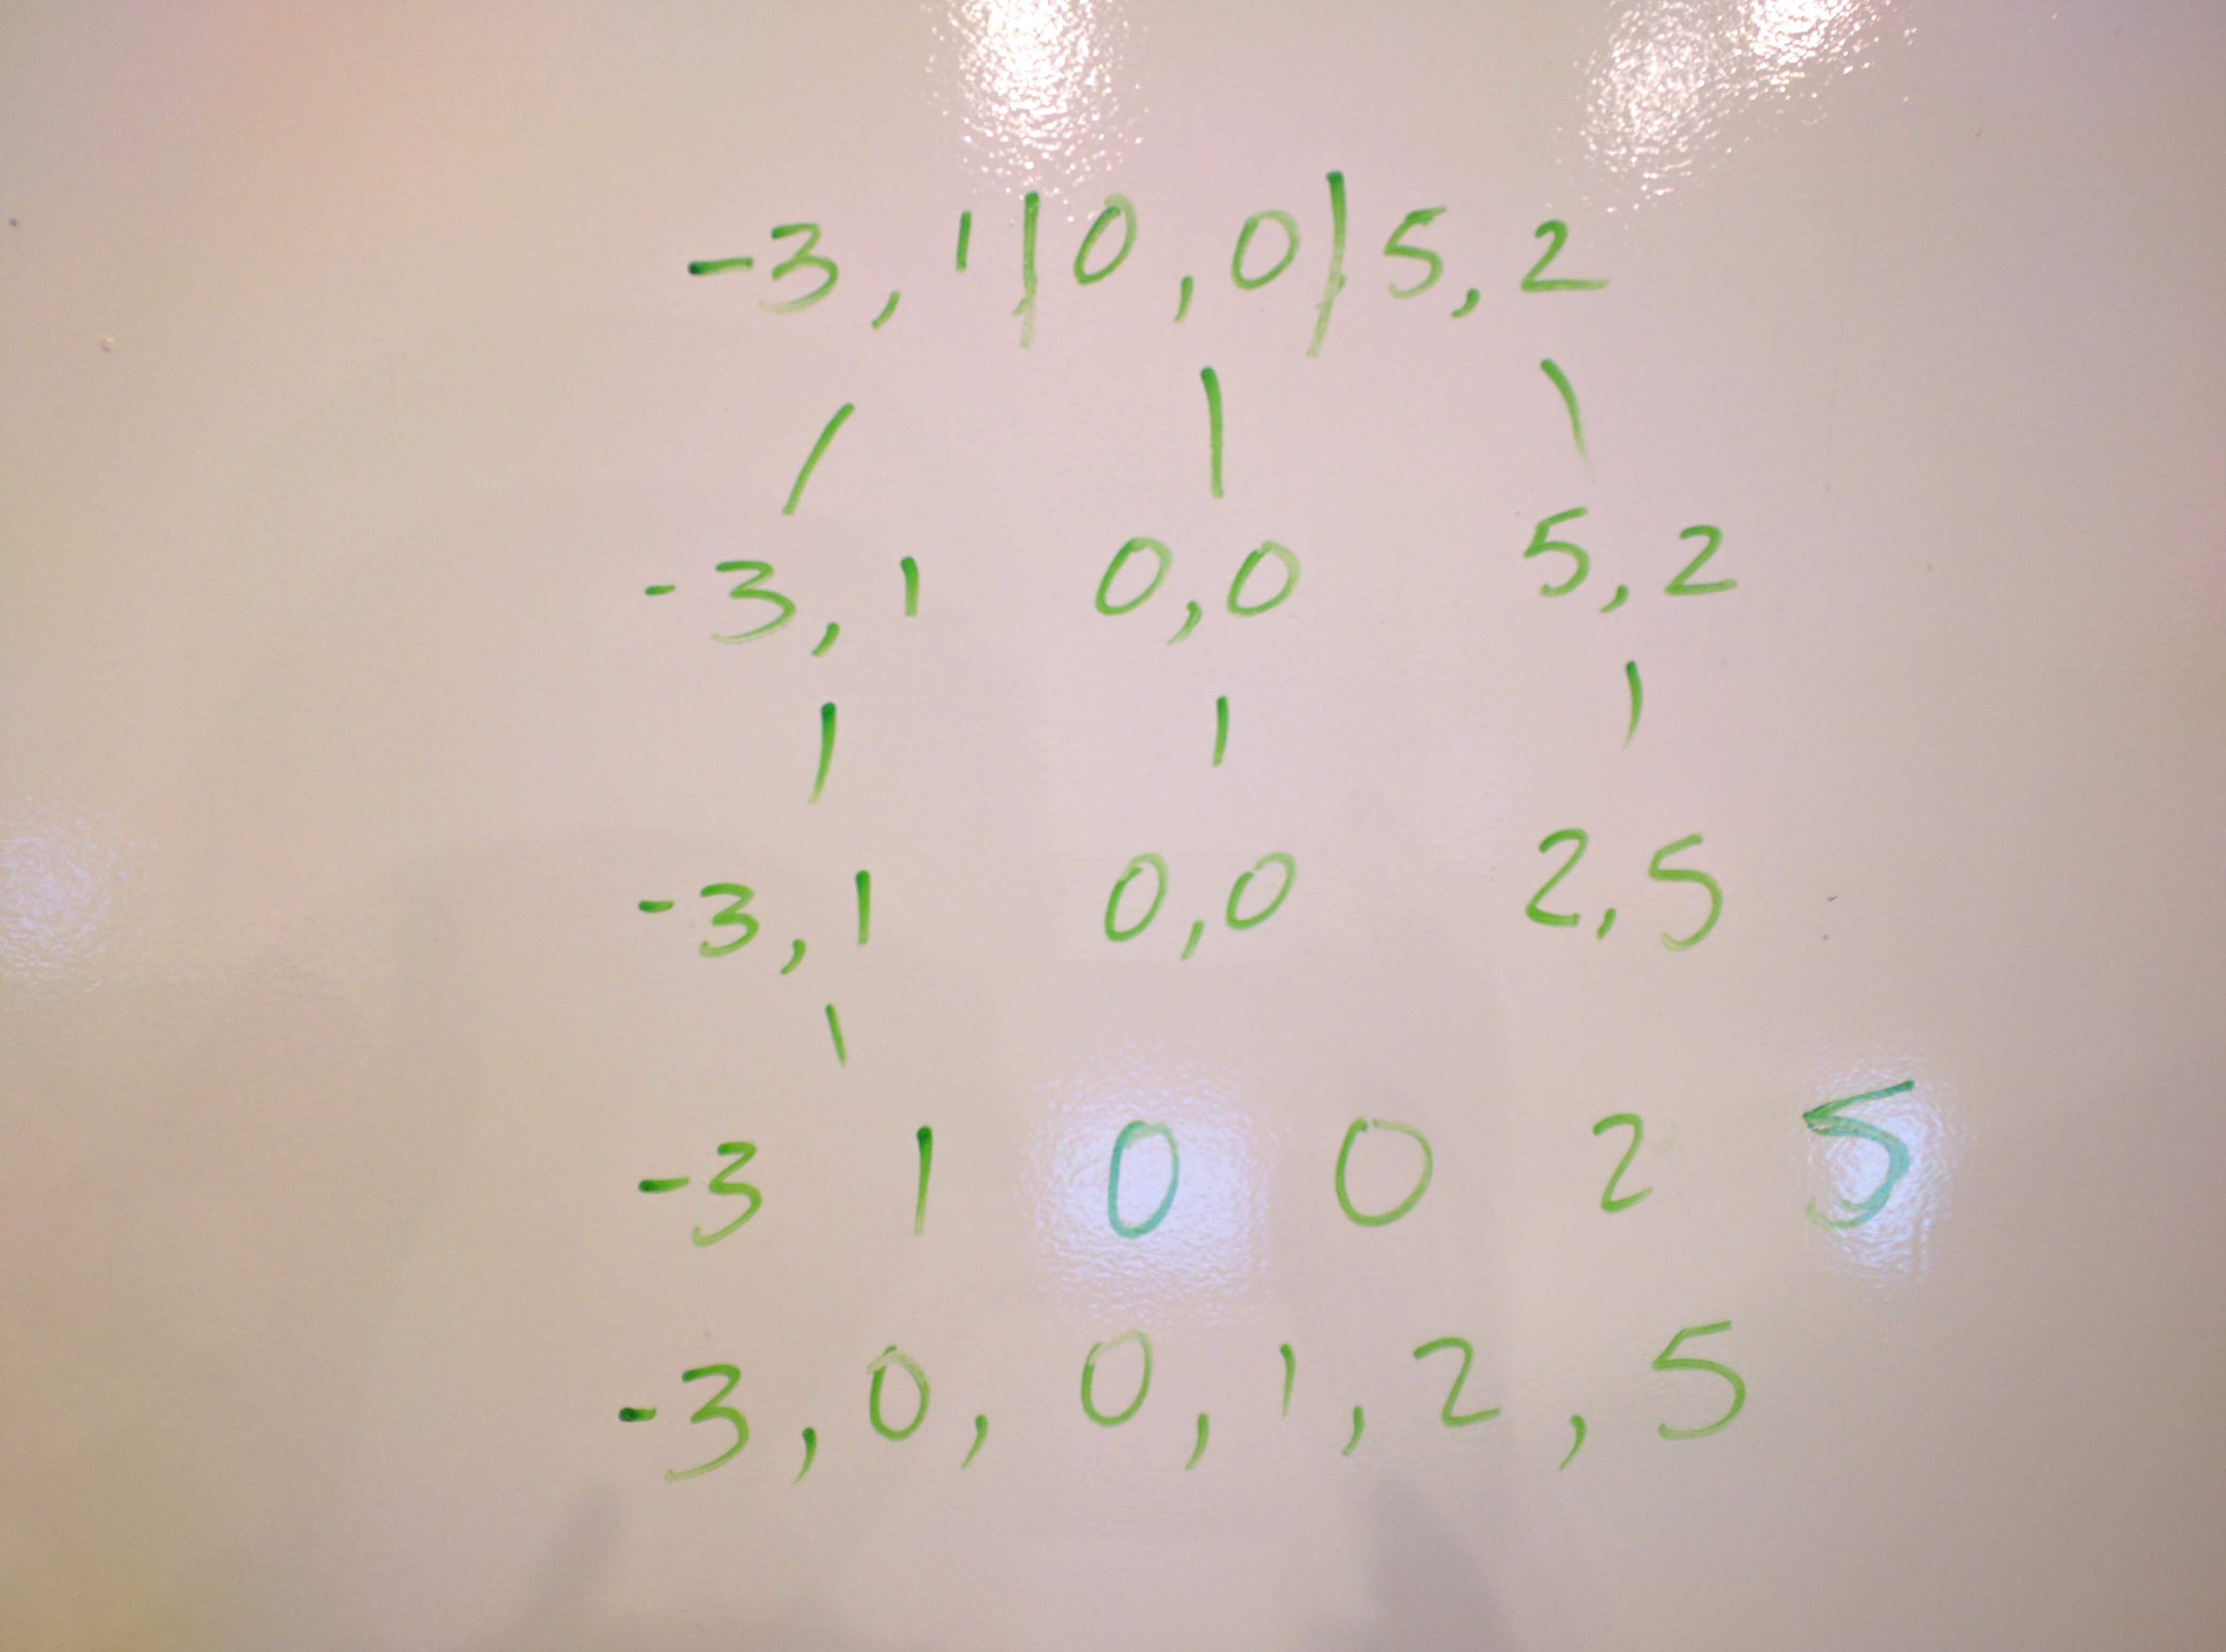 -3, 1 | 0, 0 | 5, 2
-3, 1 0,0 5, 2
-3, 1 0,0 2,5
-3 1 0 0 2 5
-3, 0, 0, 1, 2, 5